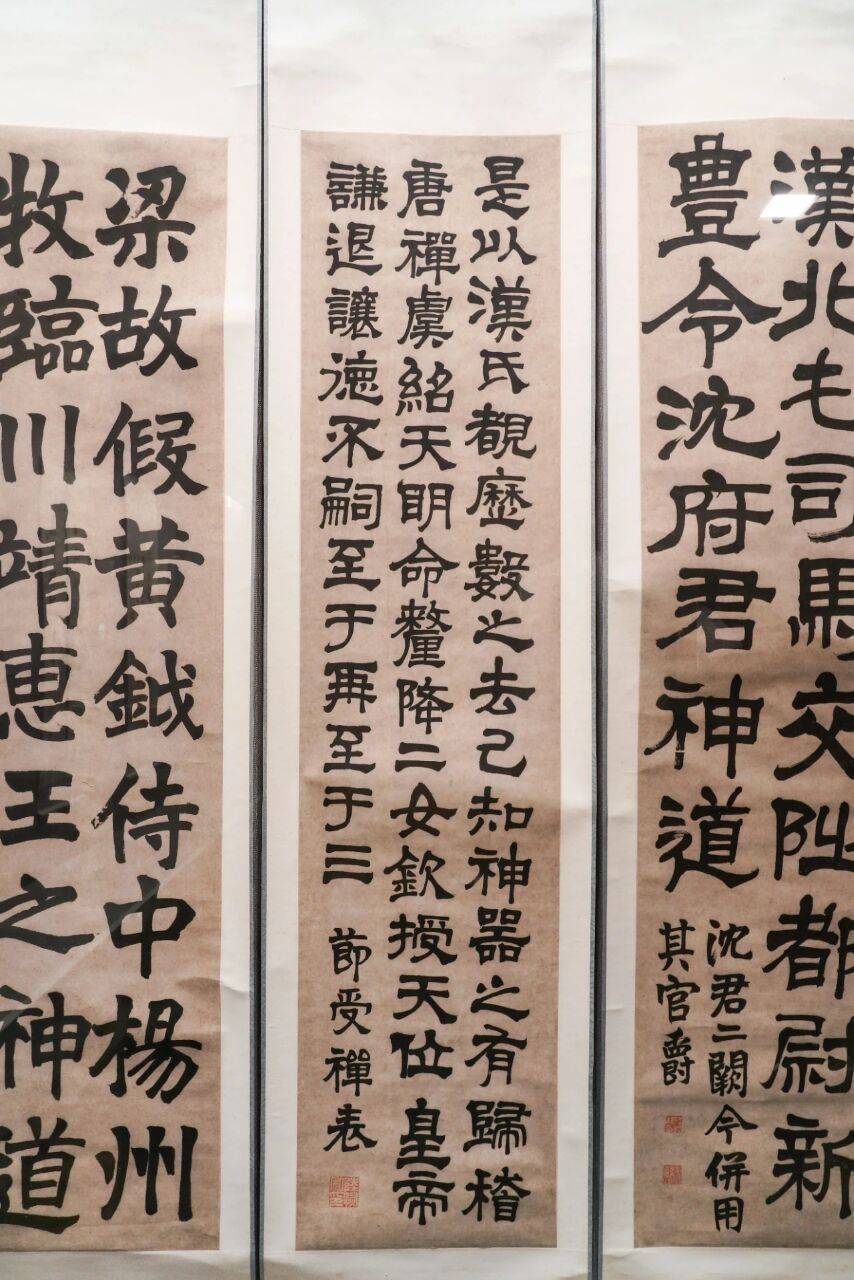 漢北屯司馬交阯都尉新
豊令沈府君神道
沈君二闕今併用
其官爵
是以漢氏覩歷數之去己知神器之有歸稽
唐禪虞紹天明命釐降二女欽授天位皇帝
謙退讓德不嗣至于再至于三
節受禪表
梁故假黄鉞侍中楊州
牧臨川靖惠王之神道